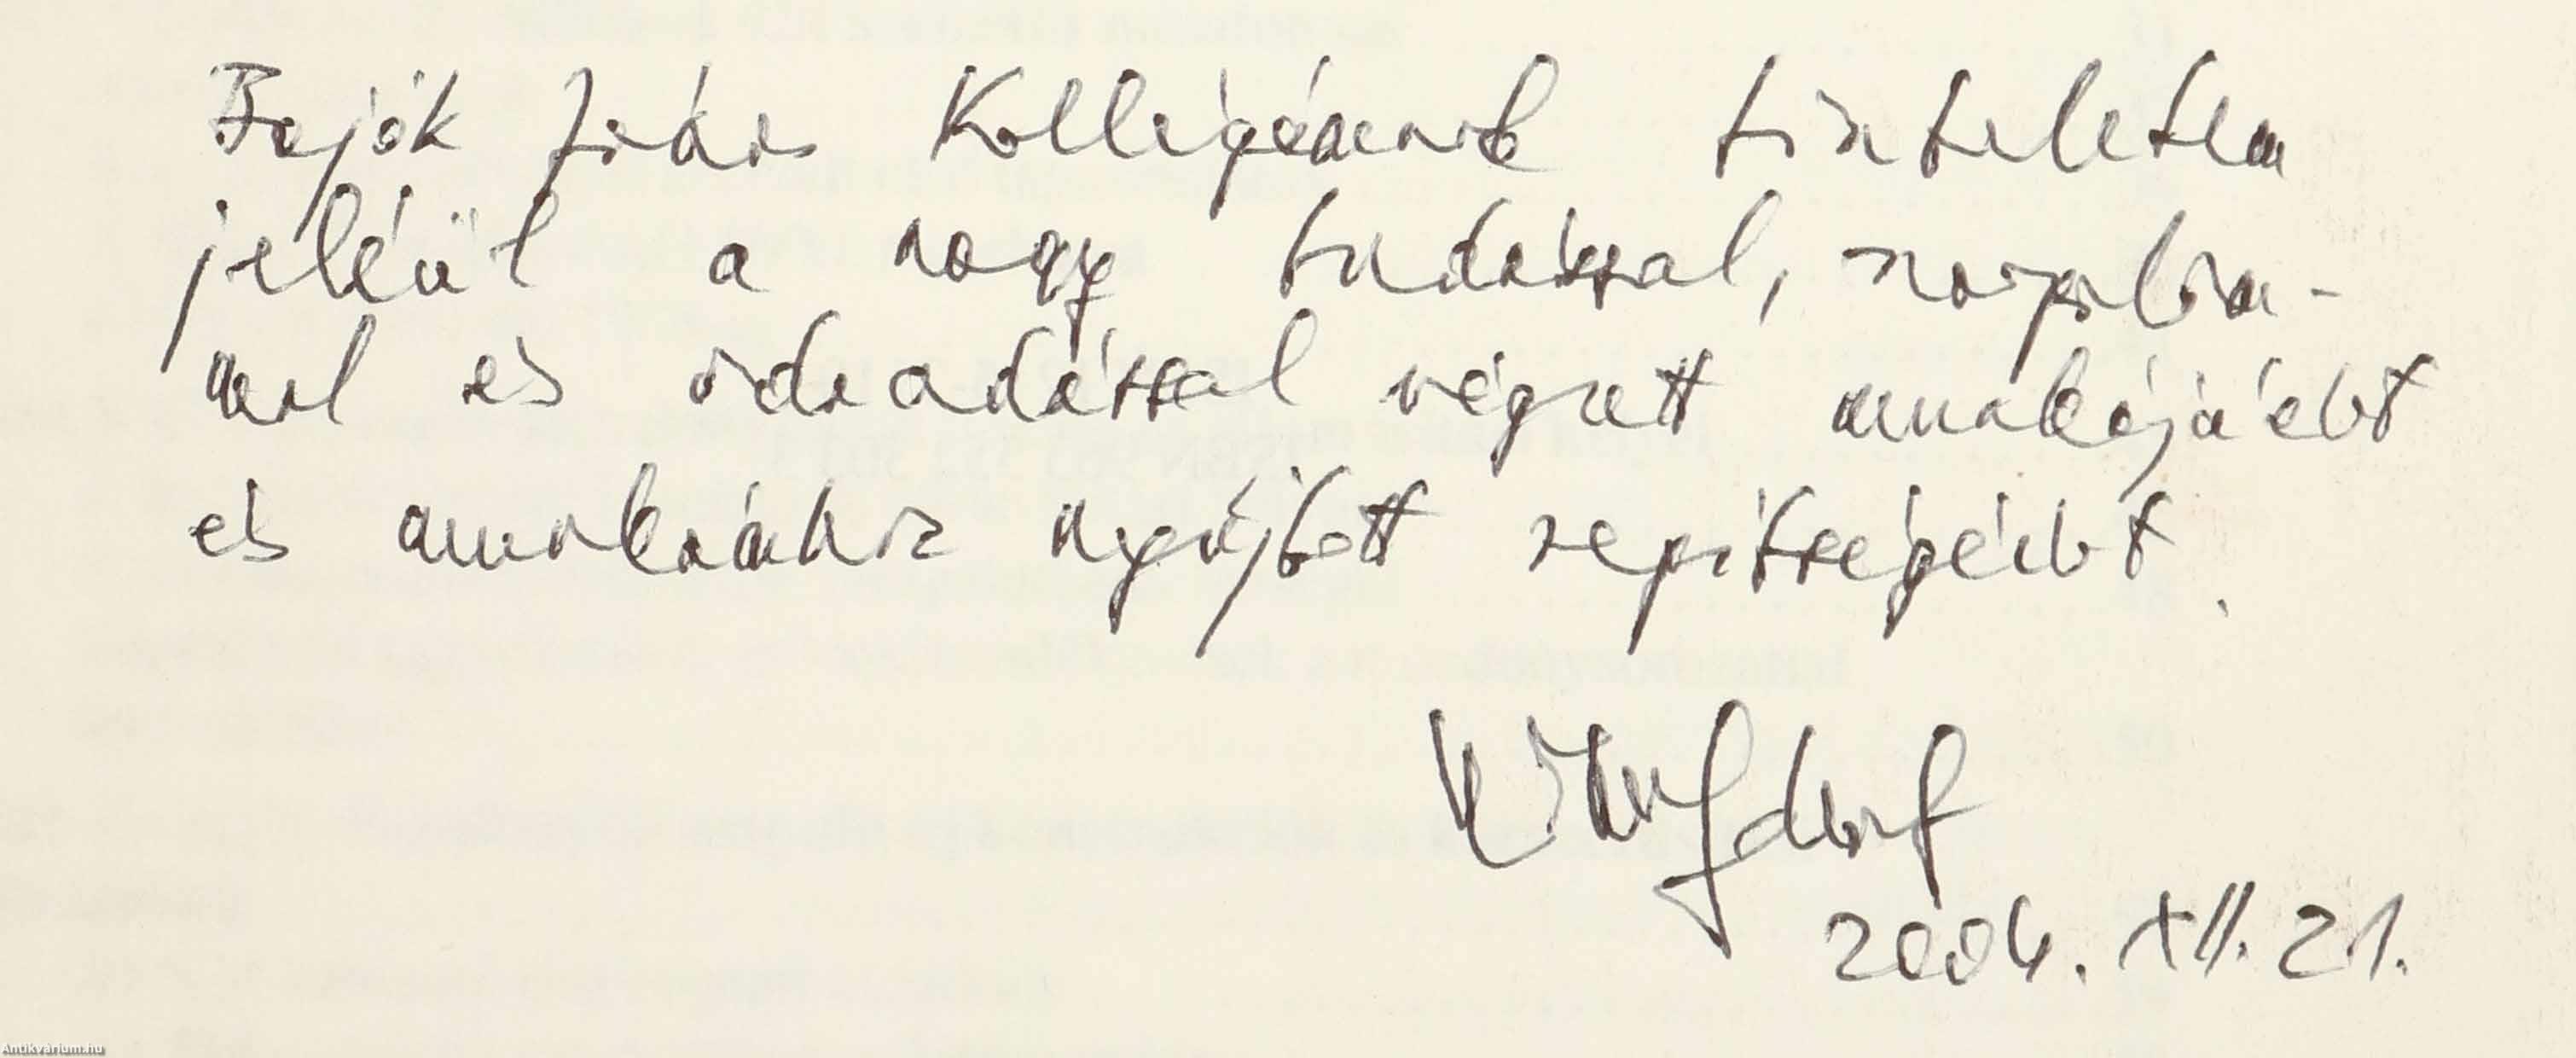 Bajók Kollégámnak tiszteletem
jeléül a nagy tudással, szorgalom-
mal és odaadással végzett munkájáért
és munkámhoz nyújtott segítségéért.
2004. XII. 21.
Antikvárium.hu